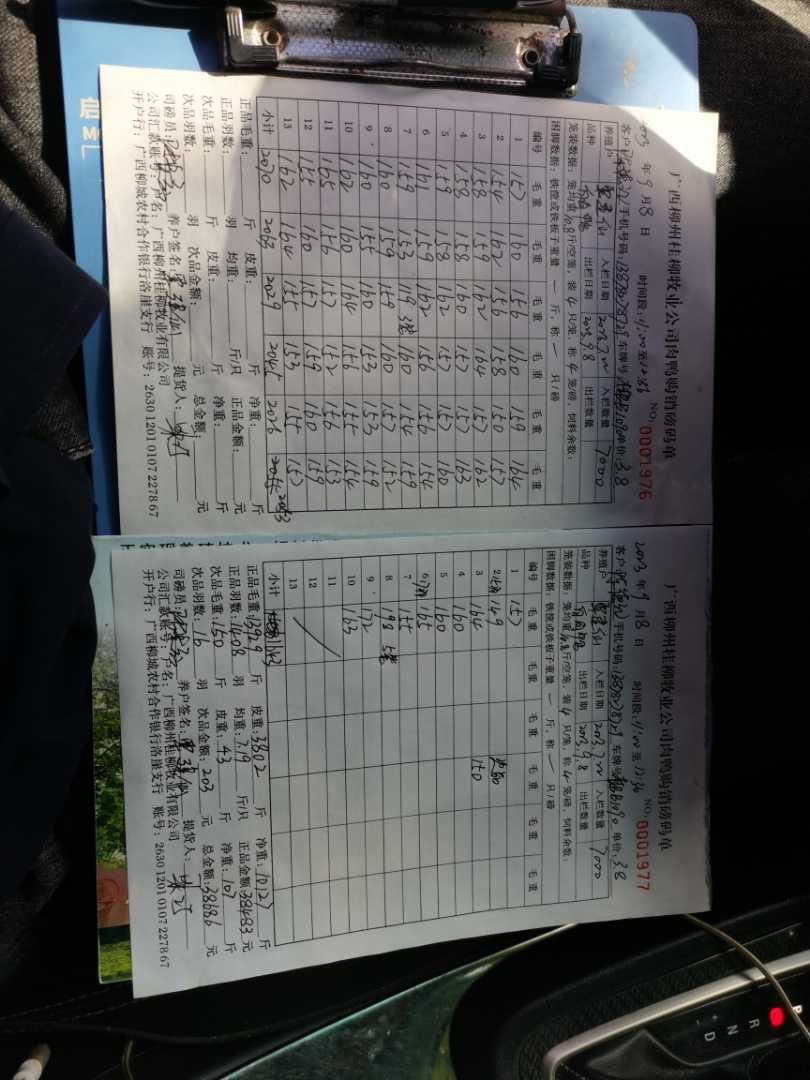 广西柳州桂柳牧业公司肉鸭购销磅码单
NO: 0001976
2023 年 9 月 8 日 时间段: 11:00 至 12:36
手机号码: 车牌号 单价: 3.8
养殖户 入栏日期 2023.7.22 入栏数量 7000
品种 出栏日期 2023.9.8 出栏数量
笼装数据: 笼均重10.8斤/空笼, 装4只/笼, 称4笼/磅, 饲料余数:
困脚数据: 铁镗或铁板子重量 一 斤, 称 一 只/磅
编号 毛重 毛重 毛重 毛重 毛重 毛重
1 157 160 156 160 159 164
2 154 162 156 158 150 157
3 158 159 162 164 157 162
4 158 158 160 157 157 163
5 159 158 162 157 154 160
6 161 159 162 156 156 154
7 159 153 119 3笼 160 154 159
8 160 159 159 160 157 152
9 160 155 160 153 153 159
10 162 160 164 156 155 154
11 165 156 157 152 156 153
12 155 160 157 159 160 159
13 162 164 155 153 155 157
小计 2070 2063 2029 2045 2026 2053
正品毛重: 斤 皮重: 斤 净重: 斤
正品羽数: 羽 均重: 斤/只 正品金额: 元
次品毛重: 斤 皮重: 斤 净重: 斤
次品羽数: 羽 次品金额: 元 总金额: 元
司磅员: 养户签名: 提货人:
公司汇款账号: 户名: 广西柳州桂柳牧业有限公司
开户行: 广西柳城农村合作银行洛崖支行 账号: 2630 1201 0107 2278 67
广西柳州桂柳牧业公司肉鸭购销磅码单
NO: 0001977
2023 年 9 月 8 日 时间段: 11:00 至 12:36
手机号码: 车牌号 单价: 3.8
养殖户 入栏日期 2023.7.22 入栏数量 7000
品种 出栏日期 2023.9.8 出栏数量
笼装数据: 笼均重10.8斤/空笼, 装4只/笼, 称4笼/磅, 饲料余数:
困脚数据: 铁镗或铁板子重量 一 斤, 称 一 只/磅
编号 毛重 毛重 毛重 毛重 毛重 毛重
1 157
2 149
3 164 150
4 160
5 160
6 165
7 155
8 198 5笼
9 172
10 163
11
12
13
小计 1643
正品毛重: 13929 斤 皮重: 3802 斤 净重: 10127 斤
正品羽数: 1408 羽 均重: 7.19 斤/只 正品金额: 38483 元
次品毛重: 150 斤 皮重: 43 斤 净重: 107 斤
次品羽数: 16 羽 次品金额: 203 元 总金额: 38686 元
司磅员: 养户签名: 提货人:
公司汇款账号: 户名: 广西柳州桂柳牧业有限公司
开户行: 广西柳城农村合作银行洛崖支行 账号: 2630 1201 0107 2278 67
启
R
N
D